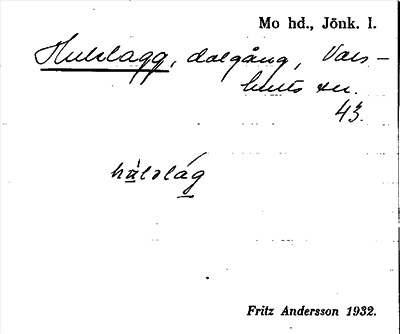 Mo hd., Jönk. l.
Hulslagg, dalgång, Vals-
hults sn.
43.
hùlslág
Fritz Andersson 1932.